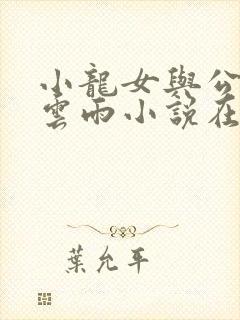 小龍女與公
雲雨小說在
葉允平